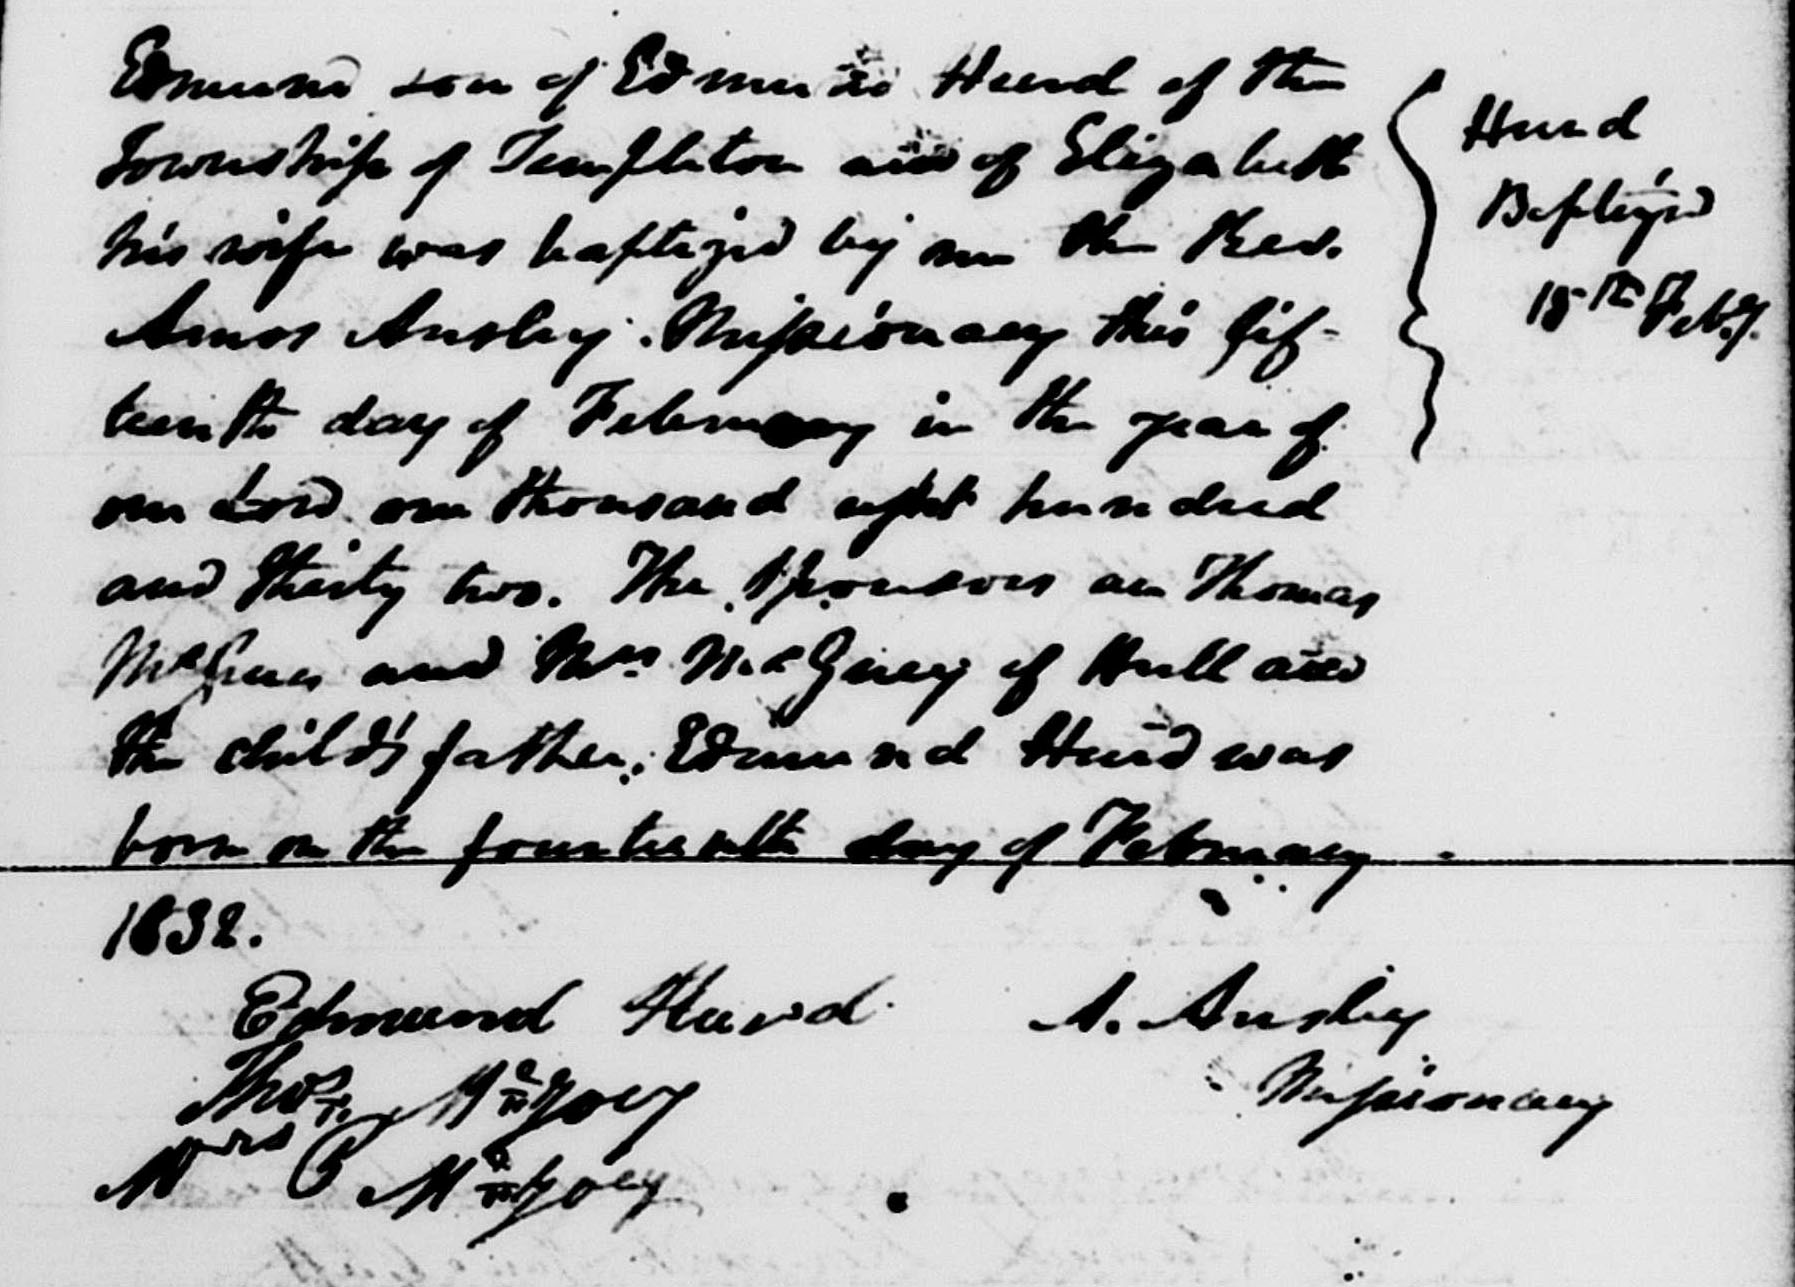 Edmund son of Edmund Hurd of the
Township of Templeton and of Elizabeth
his wife was baptized by me the Rev.
Amos Ansley. Missionary this fif-
teenth day of February in the year of
our Lord one thousand eight hundred
and thirty two. The Sponsors are Thomas
and Mrs. McGoey of Hull and
the child's father. Edmund Hurd was
born on the fourteenth day of February
1832.
Edmund Hurd
A. Ansley
Missionary
Thos. McGoey
Mrs McGoey
Hurd
Baptiz'd
15th Feby.